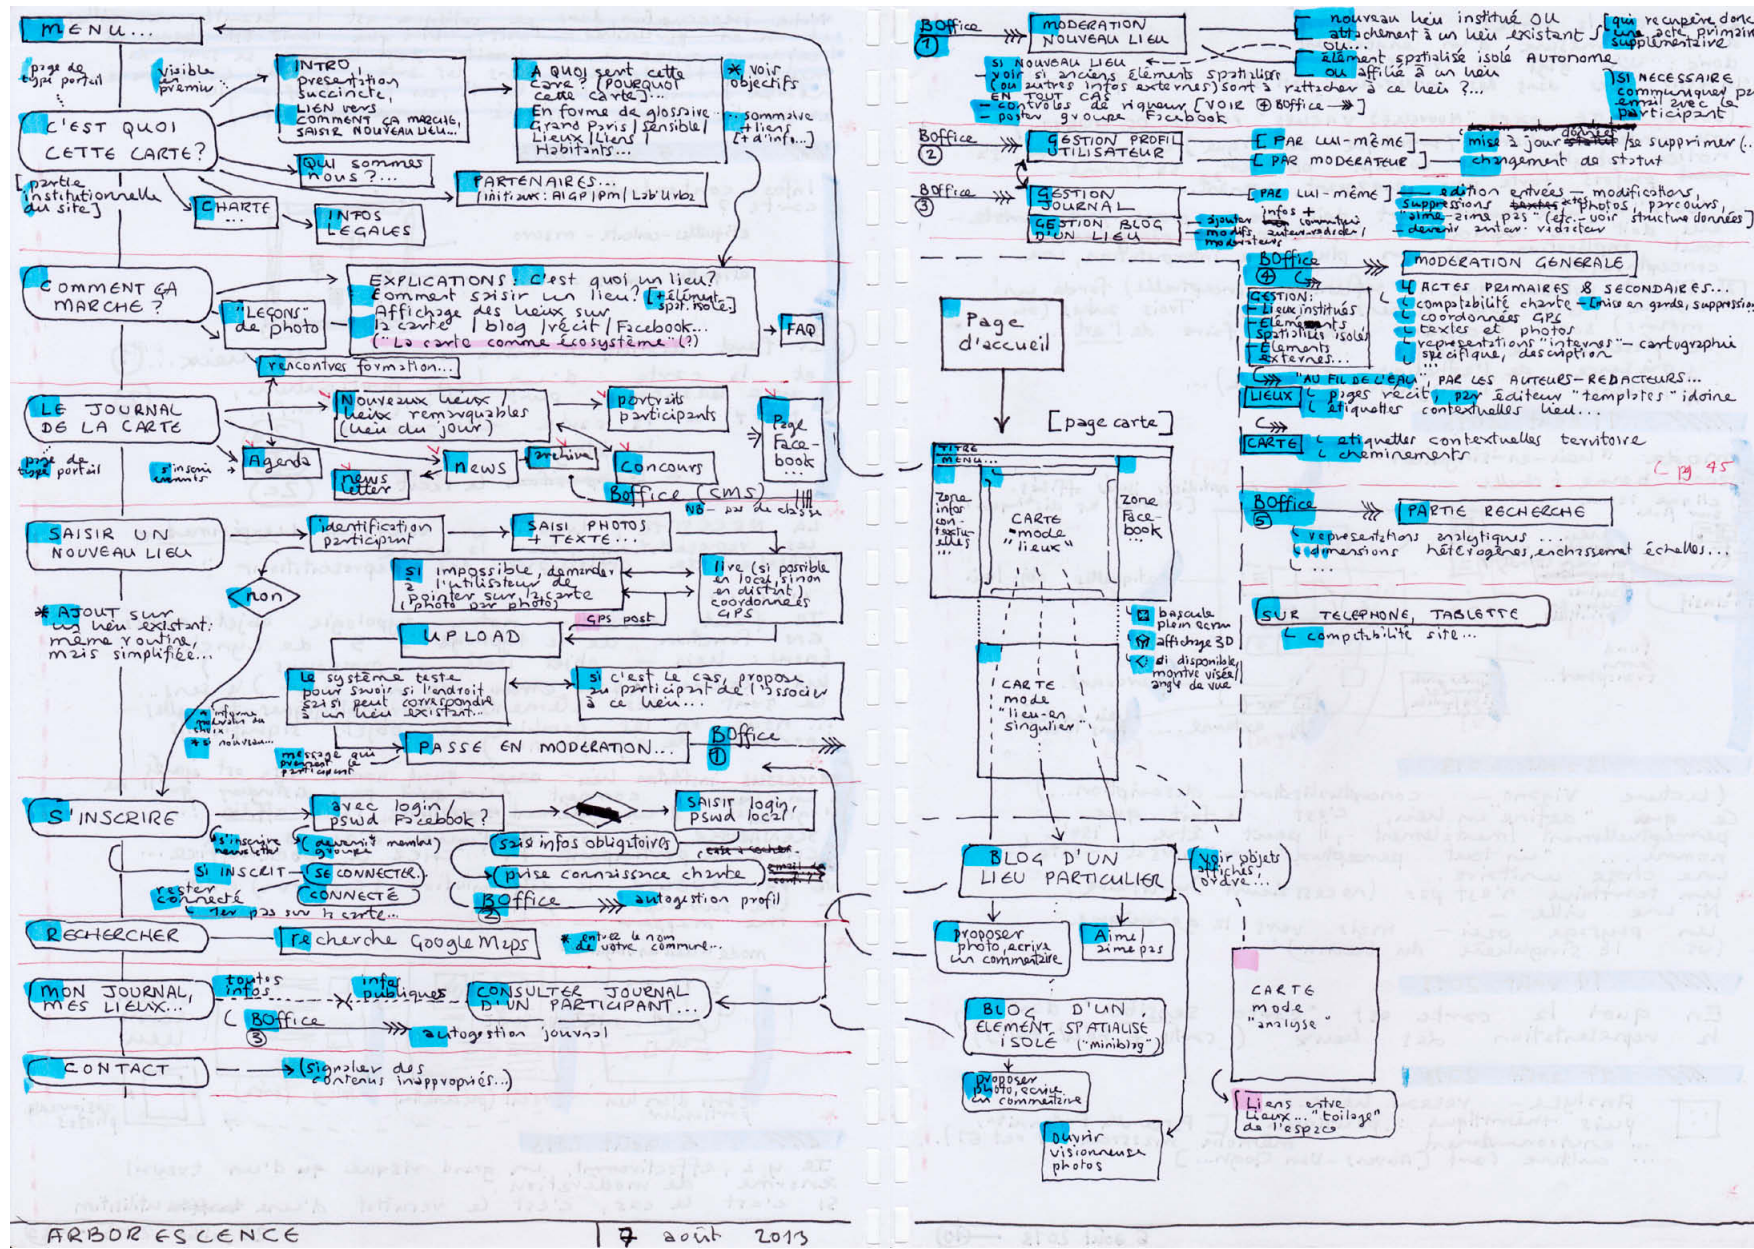 MENU...
page de
type portail
visible
en
premier
INTRO
presentation
succincte,
LIEN vers
COMMENT ÇA MARCHE,
SAISIR NOUVEAU LIEU...
A QUOI sert cette
carte ? (POURQUOI
cette carte)...
En forme de glossaire
Grand Paris / sensible /
Lieux / Liens /
Habitants...
* voir
objectifs
...sommaire
+ liens
[+ d'infos...]
C'EST QUOI
CETTE CARTE?
[partie
institutionnelle
du site]
QUI SOMMES
NOUS ?...
PARTENAIRES...
CHARTE
...
INFOS
LEGALES
COMMENT ÇA
MARCHE ?
"LEÇONS"
de photo
EXPLICATIONS : C'est quoi un lieu?
Comment saisir un lieu? [+ élément
spat. isolé]
Affichage des lieux sur
la carte / blog / récit / Facebook...
("La carte comme écosystème"(?)
FAQ
rencontres formation...
LE JOURNAL
DE LA CARTE
page de
type portail
Nouveaux lieux /
lieux remarquables
(lieu du jour)
portraits
participants
Page
Face-
book
...
s'inscrire
Agenda
news
letter
news
archive
concours
BOffice (CMS)
SAISIR UN
NOUVEAU LIEU
identification
participant
SAISI PHOTOS
+ TEXTE...
non
si impossible, demander
à l'utilisateur de
pointer sur la carte
(photo par photo)
live (si possible
en local, sinon
en distant)
coordonnées
GPS
GPS post
* AJOUT sur
un lieu existant:
même routine,
mais simplifiée...
UPLOAD
le système teste
pour savoir si l'endroit
saisi peut correspondre
à un lieu existant...
si c'est le cas, propose
au participant de l'associer
à ce lieu...
* si nouveau...
message qui
prévient le
participant
PASSE EN MODERATION...
BOffice
1
S'INSCRIRE
avec login
pswd Facebook?
SAISIT login,
pswd local
s'inscrire
newsletter
(devenir membre)
groupe
saisi infos obligatoires
SI INSCRIT
SE CONNECTER
prise connaissance charte
rester
connecté
CONNECTÉ
1er pas sur la carte...
BOffice
2
autogestion profil
RECHERCHER
recherche Google Maps
* entrez le nom
de votre commune...
MON JOURNAL,
MES LIEUX...
toutes
infos
infos
publiques
CONSULTER JOURNAL
D'UN PARTICIPANT...
BOffice
3
autogestion journal
CONTACT
(signaler des
contenus inappropriés...)
ARBORESCENCE
7 août 2013
BOffice
1
MODERATION
NOUVEAU LIEU
nouveau lieu institué OU
attachement à un lieu existant
OU...
élément spatialisé isolé AUTONOME
OU affilié à un lieu
[qui récupère donc
une acte primaire
supplémentaire
SI NOUVEAU LIEU
- voir si anciens éléments spatialisés
(ou autres infos externes) sont à rattacher à ce lieu ?...
EN TOUT CAS
- contrôles de rigueur [VOIR BOffice
- poster groupe Facebook
SI NECESSAIRE
communiquer par
email avec le
participant
BOffice
2
GESTION PROFIL
UTILISATEUR
[PAR LUI-MÊME]
mise à jour données / se supprimer (...
[PAR MODERATEUR]
changement de statut
BOffice
3
GESTION
JOURNAL
[PAR LUI-MÊME]
edition entrées - modifications,
suppressions actes photos, parcours,
"aime-aime pas" (etc. voir structure données)
- devenir auteur rédacteur
GESTION BLOG
D'UN LIEU
- ajouter infos +
- modifs auteur-rédacteur /
moderateurs
BOffice
4
MODERATION GENERALE
GESTION:
- Lieux institués
- Eléments
spatialisés isolés
- Eléments
externes...
ACTES PRIMAIRES & SECONDAIRES...
comptabilité charte - [mise en garde, suppression
coordonnées GPS
textes et photos
représentations "internes" - cartographie
spécifique, description
...
"AU FIL DE L'EAU", PAR LES AUTEURS-REDACTEURS...
LIEUX
pages récit, par éditeur "templates" idoine
étiquettes contextuelles lieu...
CARTE
etiquettes contextuelles territoire
cheminements
pg 45
BOffice
5
PARTIE RECHERCHE
représentations analytiques ...
dimensions hétérogènes, enchassemnt échelles...
...
SUR TELEPHONE, TABLETTE
comptabilité site...
Page
d'accueil
[page carte]
TITRE
MENU...
Zone
infos
con-
textu-
elles
...
CARTE
mode
"lieux"
Zone
Face-
book
...
bascule
plein ecran
affichage 3D
si disponible,
montre visée/
angle de vue
CARTE
mode
"lieu-en
singulier"
BLOG D'UN
LIEU PARTICULIER
voir objets
affichés,
ordre...
proposer
photo, ecrire
un commentaire
Aime/
aime pas
BLOG D'UN
ELEMENT SPATIALISE
ISOLÉ ("miniblog")
proposer
photo, ecrire
un commentaire
ouvrir
visionneuse
photos
CARTE
mode
"analyse"
Liens entre
Lieux... "toilage"
de l'espace